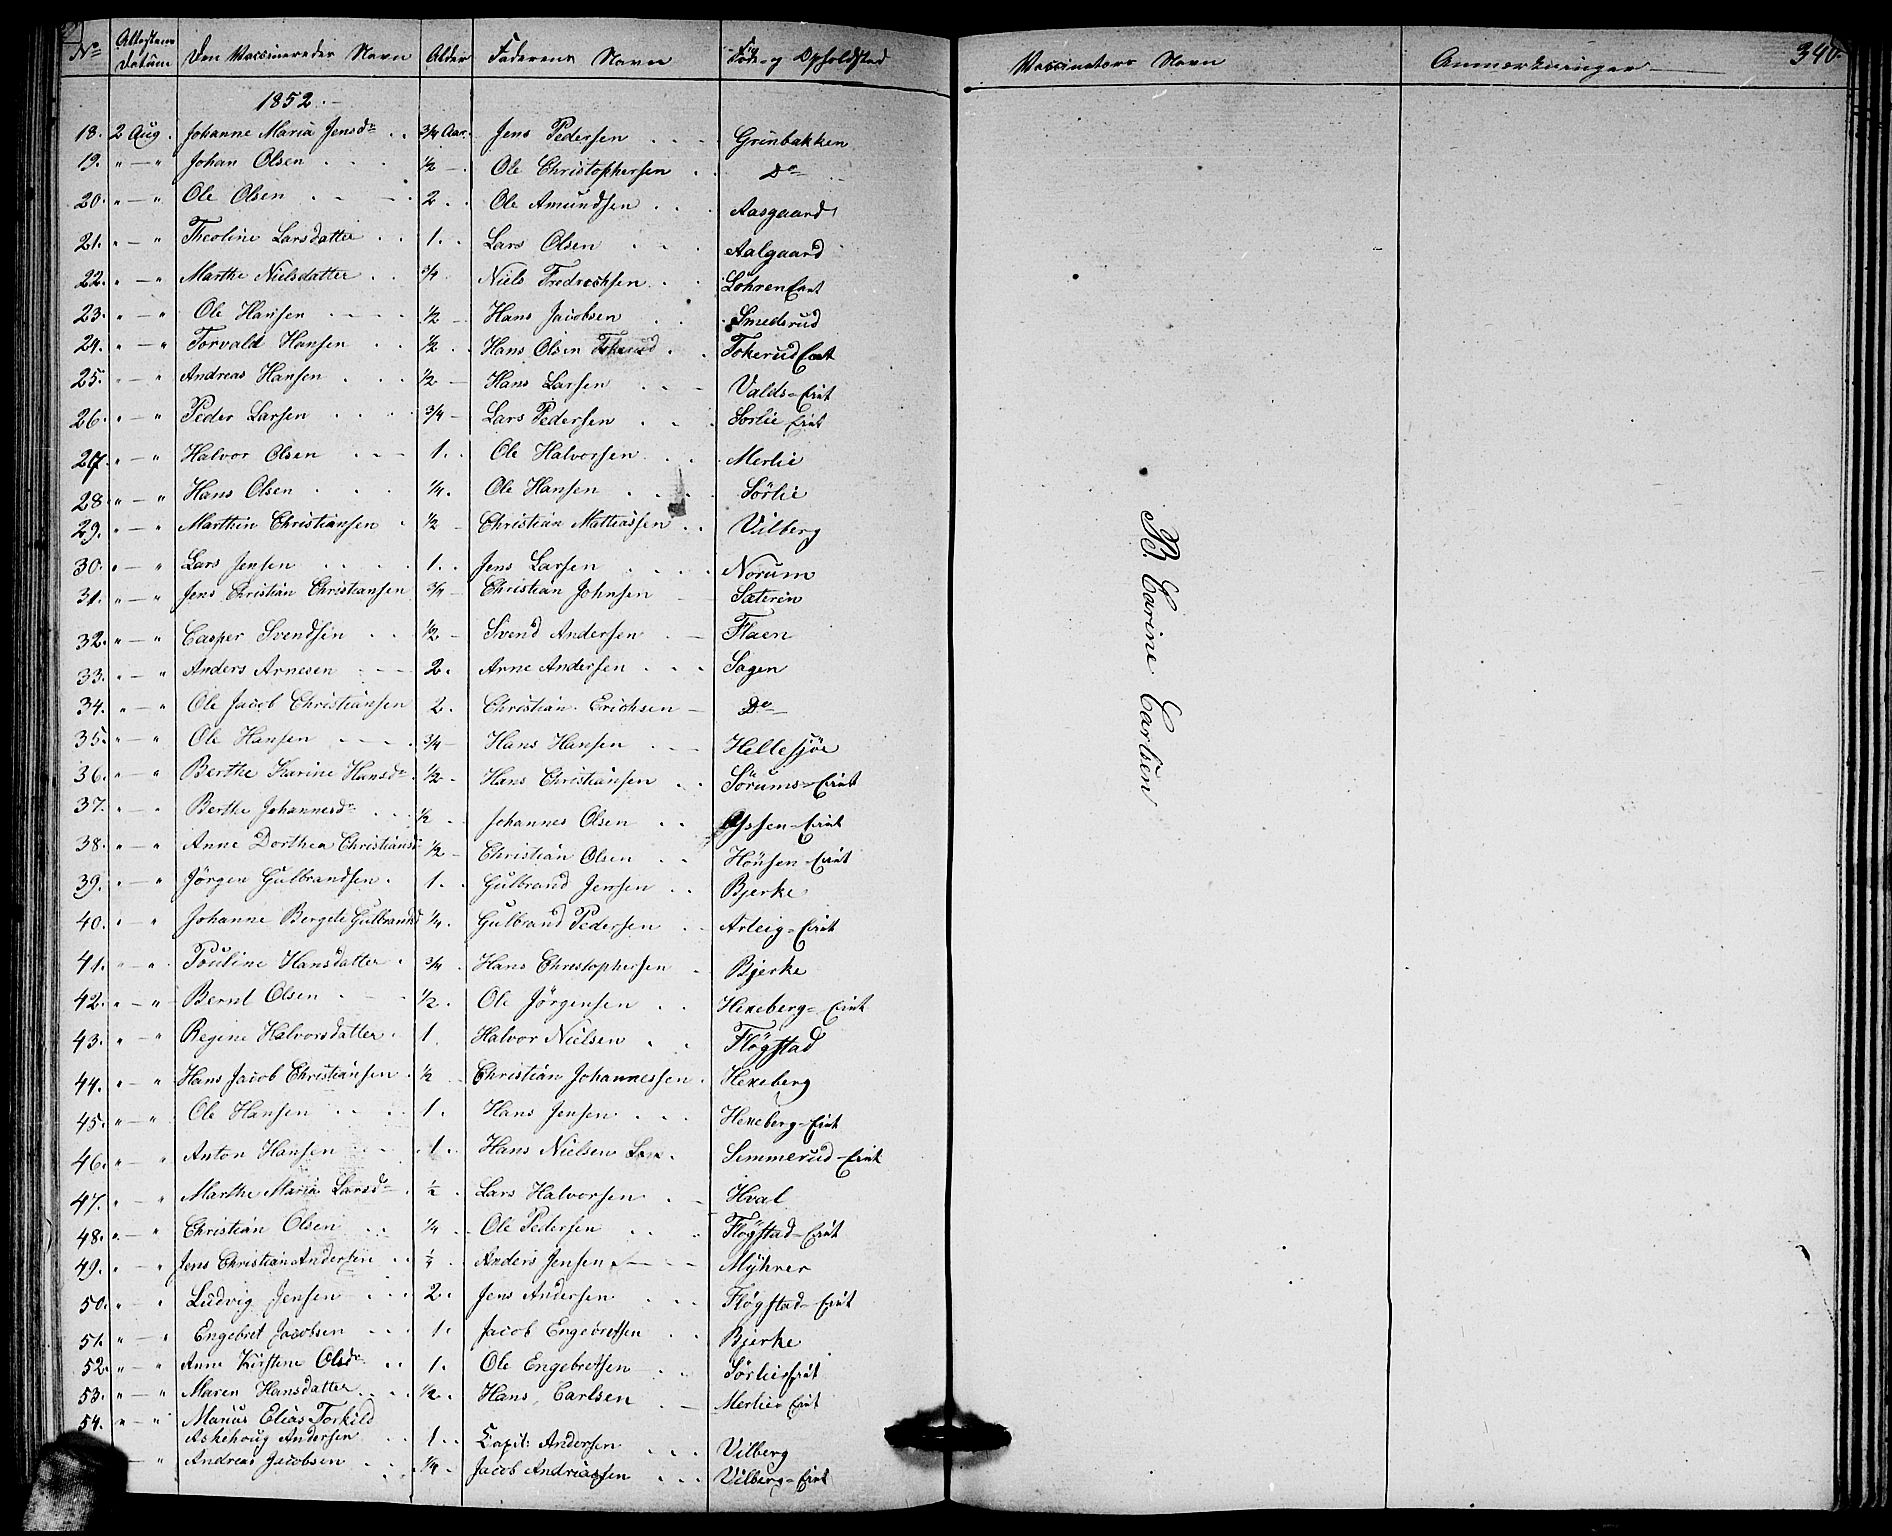 340.
No Attestens Datum Den Vaccineredes Navn Alder Faderens Navn Føde- og Opholdsted Vaccinators Navn Anmærkninger
1852.
18. 2 Aug. Johanne Maria Jensdr 3/4 Aar. Jens Pedersen Grinbakken
19. " — " Johan Olsen 1/2 Ole Christophersen Do
20. " — " Ole Olsen 2. Ole Amundsen Aasgaard
21. " — " Theoline Larsdatter 1. Lars Olsen Aalgaard
22. " — " Marthe Nielsdatter 3/4 Niels Fredrechsen Løhren Eiet
23. " — " Ole Hansen 1/2 Hans Jacobsen Smederud
24. " — " Torvald Hansen 1/2 Hans Olsen Tokerud Eiet
25. " — " Andreas Hansen 1/2 Hans Larsen Valds-Eiet
26. " — " Peder Larsen 3/4 Lars Pedersen Sørlie Eiet
27. " — " Halvor Olsen 1. Ole Halvorsen Merlie
28. " — " Hans Olsen 1/4. Ole Hansen Sörlie
29. " — " Marthin Christiansen 1/2 Christian Mathiassen Vilberg
30. " — " Lars Jensen 1. Jens Larsen Norum
31. " — " Jens Christian Christiansen 3/4 Christian Johnsen Sæteren
32. " — " Casper Svendsen 1/2 Svend Andersen Flaen
33. " — " Anders Arnesen 2. Arne Andersen Sagen
34. " — " Ole Jacob Christiansen 2. Christian Erichsen Do
35. " — " Ole Hansen 3/4 Hans Hansen Hellesjøe
36. " — " Berthe Karine Hansdr 1/2 Hans Christiansen Sörums-Eiet
37. " — " Berthe Johannesdr 1/2 Johannes Olsen Ossen-Eiet
38. " — " Anne Dorthea Christiansd 1/2 Christian Olsen Hönsen-Eiet
39. " — " Jörgen Gulbrandsen 1. Gulbrand Jensen Bjerke
40. " " Johanne Bergete Gulbrandsd 1/4. Gulbrand Pedersen Arteig-Eiet
41. " " Pouline Hansdatter 3/4 Hans Christophersen Bjerke
42. " — " Bernt Olsen 1/2. Ole Jörgensen Hexeberg-Eiet
43. " — " Regine Halvorsdatter 1. Halvor Nielsen Flögstad
44. " — " Hans Jacob Christiansen 1/2 Christian Johannessen Hexeberg
45. " — " Ole Hansen 1. Hans Jensen Hexeberg-Eiet
46. " — " Anton Hansen 1. Hans Nielsen Semmerud-Eiet
47. " " Marthe Maria Larsdr 1/2 Lars Halvorsen Hval
48. " — " Christian Olsen 1/4 Ole Pedersen Flögstad-Eiet
49. " — " Jens Christian Andersen Anders Jensen Myhrer
50. " " Ludvig Jensen 2. Jens Andersen Flögstad-Eiet
51. " — " Engebret Jacobsen 1. Jacob Engebretsen Bjerke
52. " — " Anne Kirstine Olsdr 1. Ole Engebretsen Sörlie Eiet
53. " — " Maren Hansdatter 1/2. Hans Carlsen Merlie Eiet
54. " — " Marius Elias Torkild
Askehoug Andersen 1. Capit: Andersen Vilberg
" Andreas Jacobsen 1/4 Jacob Andreassen Vilberg-Eiet
B. Carine Carlsen